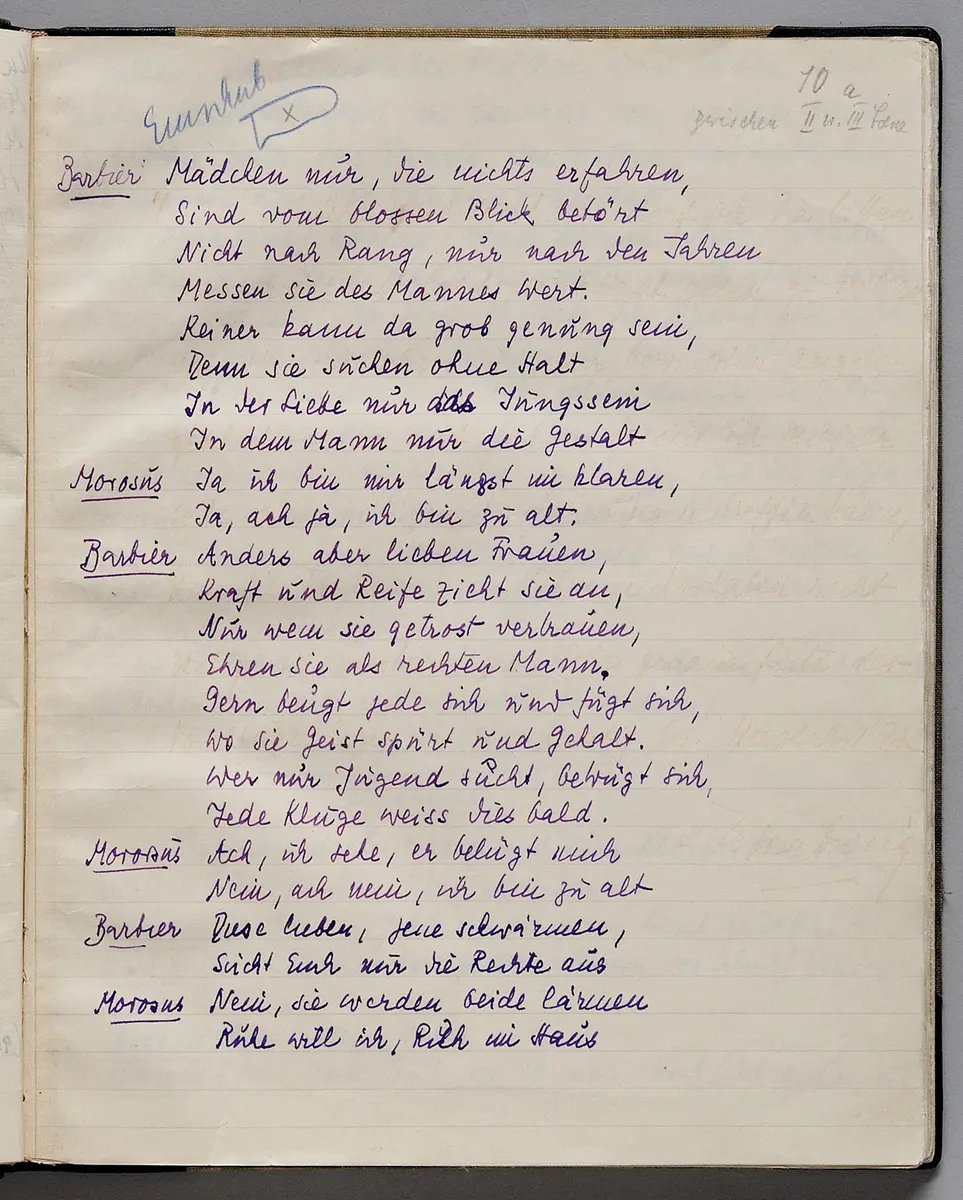 Einschub x
10 a
zwischen II u. III Scene
Barbier Mädchen nur, die nichts erfahren,
Sind vom blossen Blick betört
Nicht nach Rang, nur nach den Jahren
Messen sie des Mannes Wert.
Keiner kann da grob genung sein,
Denn sie suchen ohne Halt
In der Liebe nur das Jungssein
In dem Mann nur die Gestalt
Morosus Ja ich bin mir längst im klaren,
Ja, ach ja, ich bin zu alt.
Barbier Anders aber lieben Frauen,
Kraft und Reife zieht sie an,
Nur wem sie getrost vertrauen,
Ehren sie als rechten Mann.
Gern beugt jede sich und fügt sich,
Wo sie Geist spürt und Gehalt.
Wer nur Jugend sucht, betrügt sich,
Jede Kluge weiss dies bald.
Morosus Ach, ich sehe, er belügt mich
Nein, ach nein, ich bin zu alt
Barbier Diese lieben, jene schwärmen,
Sucht Euch nur die Rechte aus
Morosus Nein, sie werden beide lärmen
Ruhe will ich, Ruh im Haus